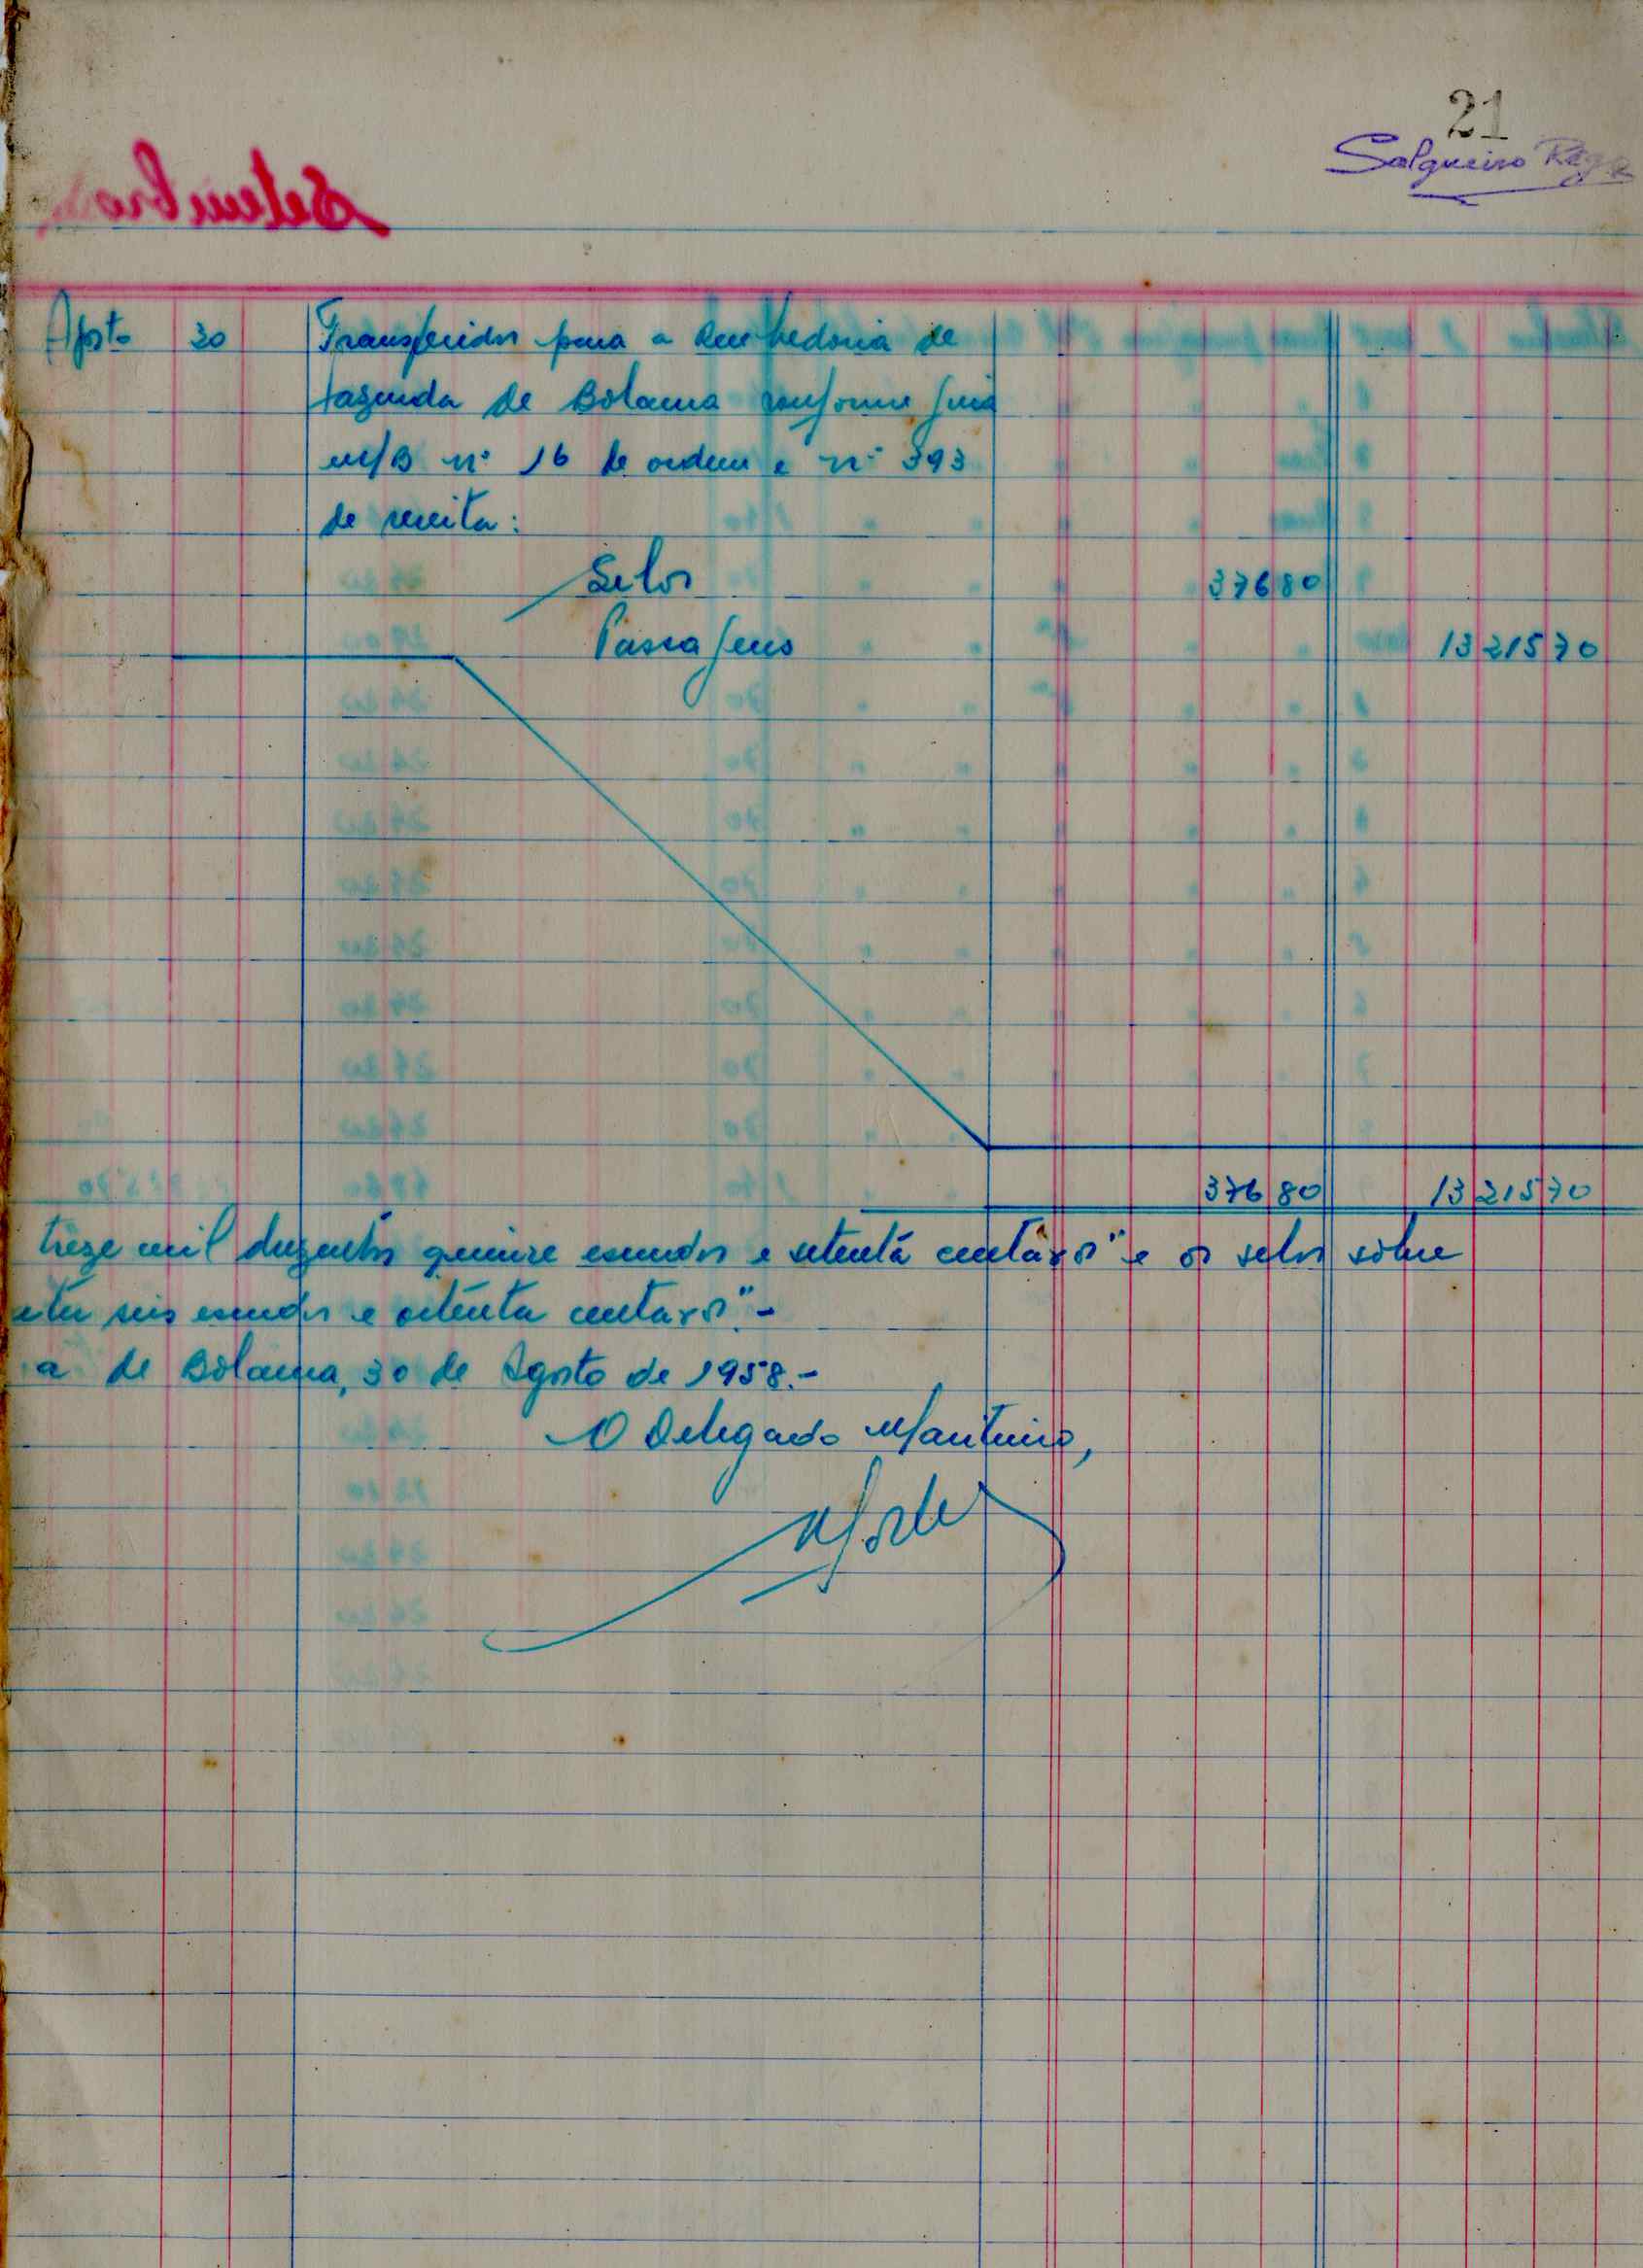 21
Salgueiro Rego
Setembro
Agosto 30 Transferidos para a Recebedoria de
Fazenda de Bolama conforme guia
M/B nº 16 de ordem e nº 393
de receita:
Selos 37680
Passagens 1321570
37680 1321570
treze mil duzentos quinze escudos e setenta centavos" e os selos sôbre
enta seis escudos e oitenta centavos".-
a de Bolama, 30 de Agosto de 1958.-
O Delegado Marítimo,